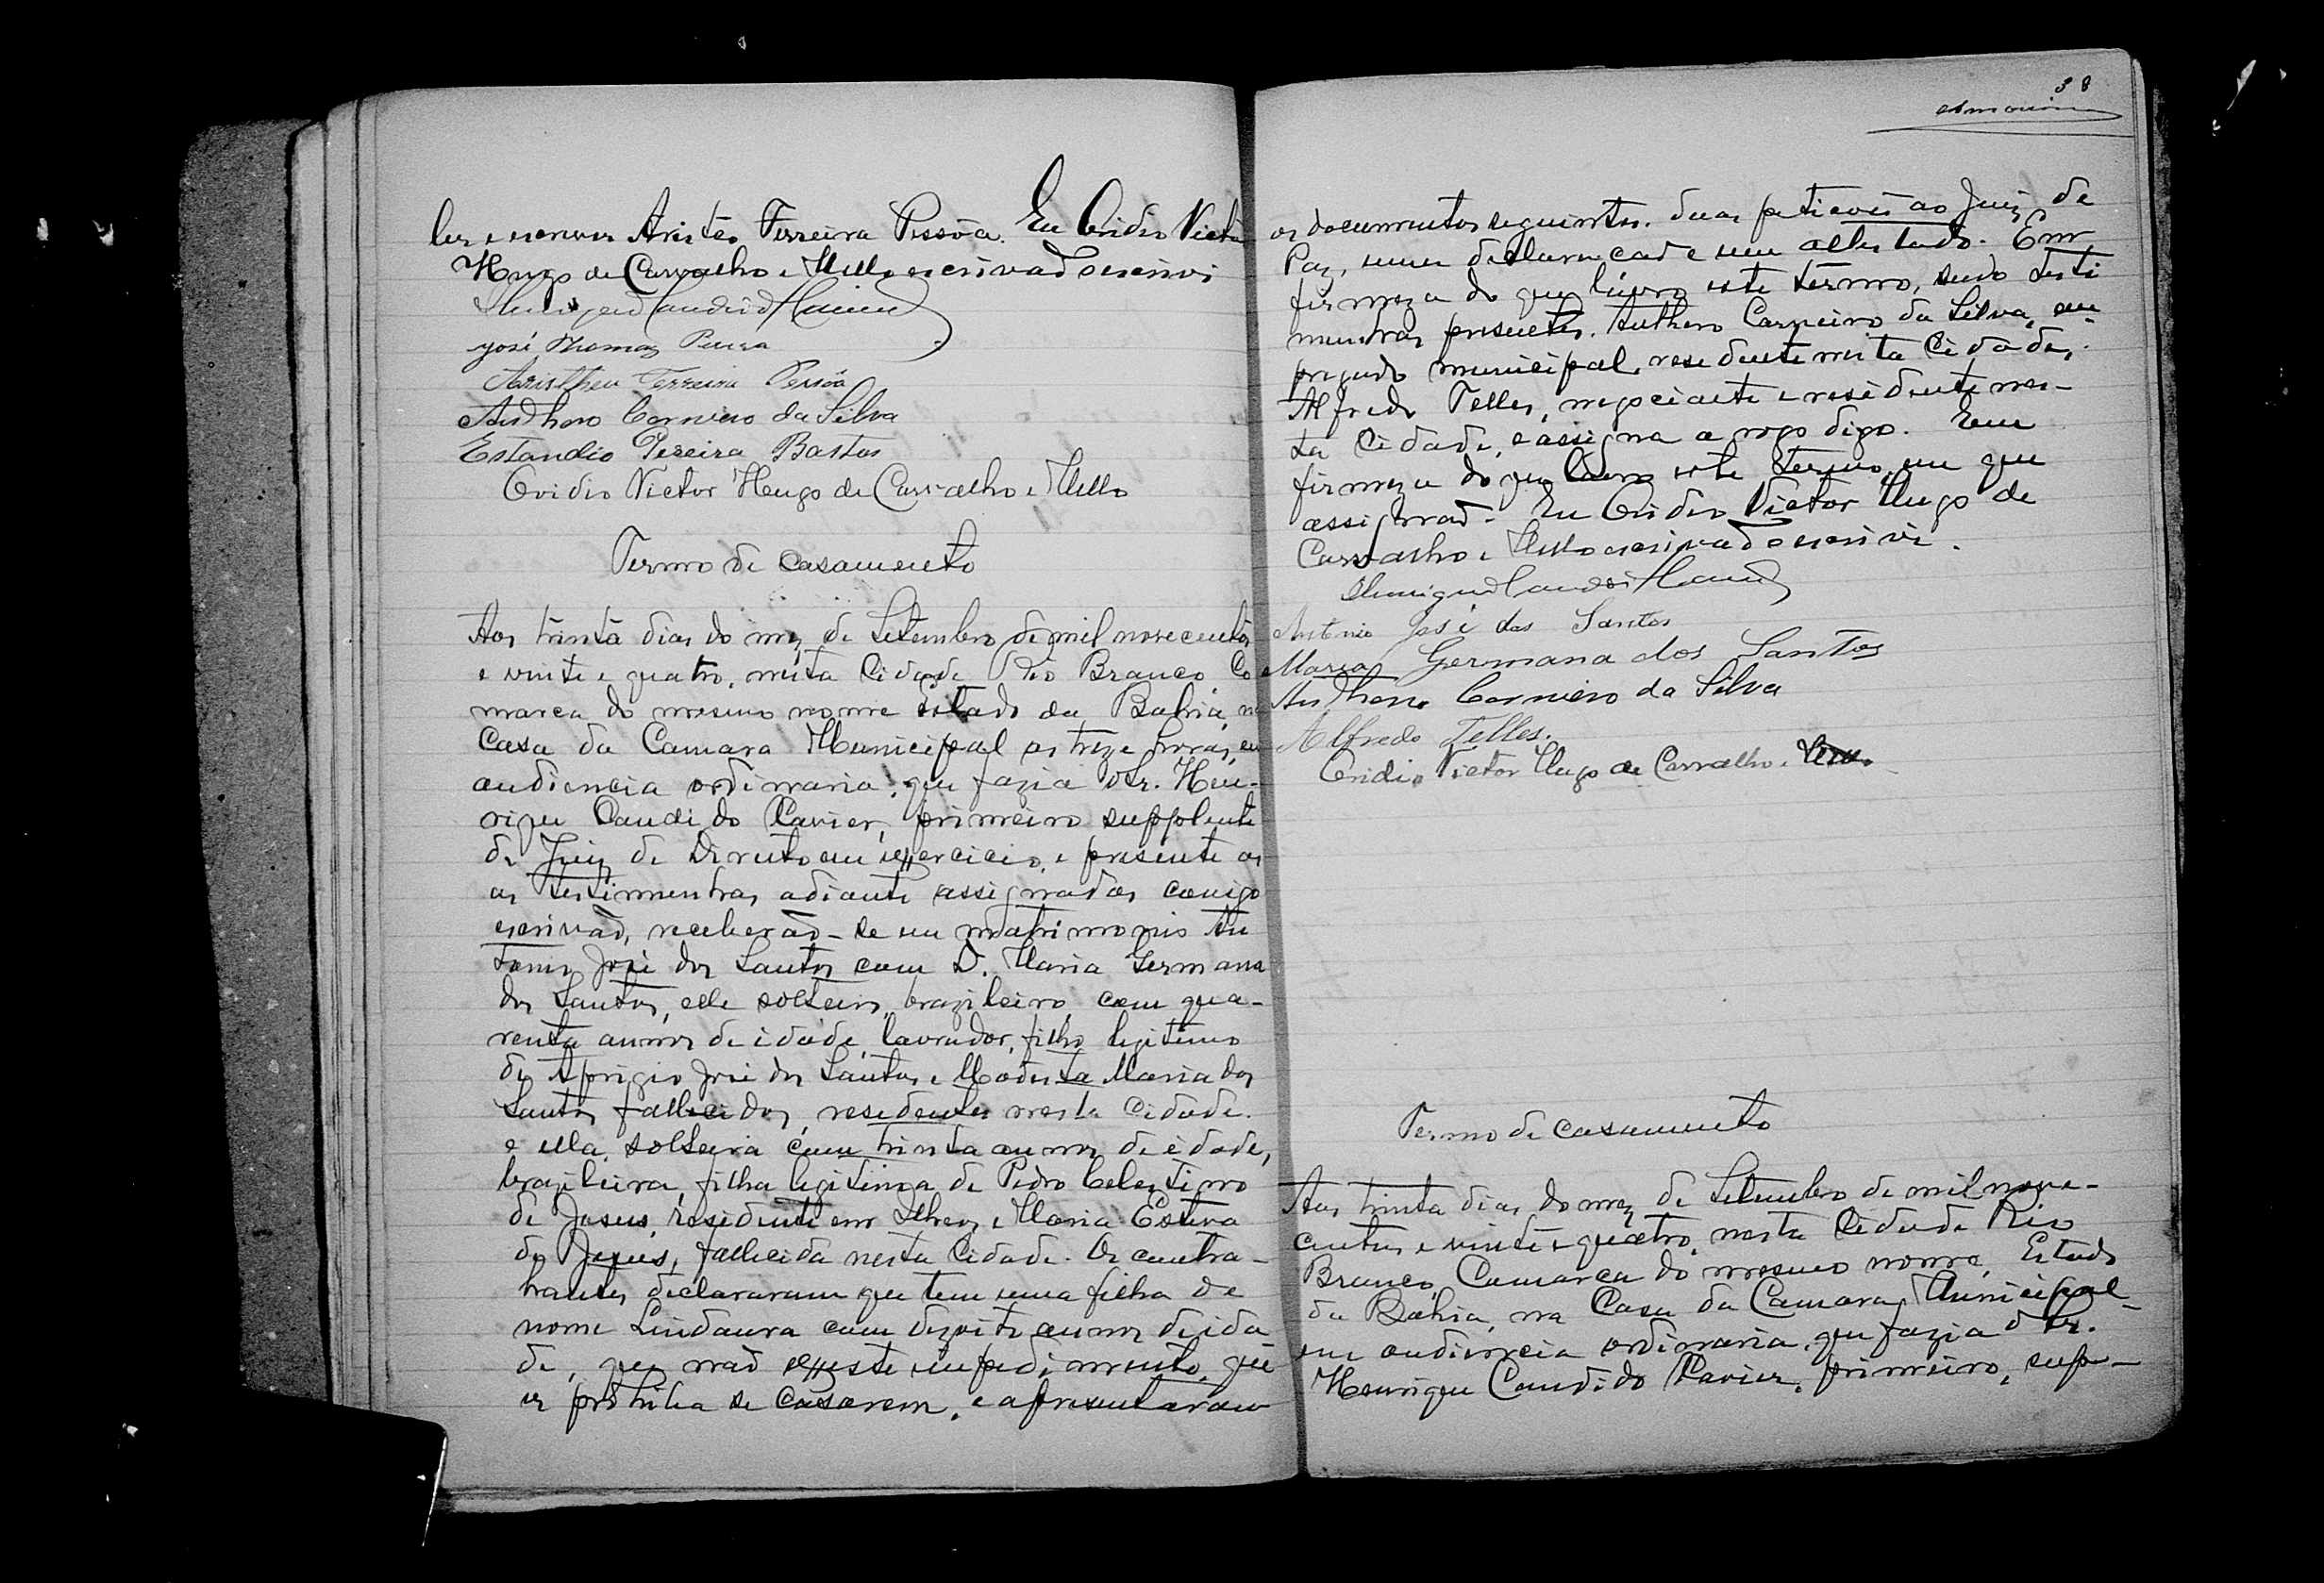 ler e escrever Aristéo Ferreira Pessôa. Eu Ovidio Victor
Hugo de Carvalho e Mello escrivaõ escrevi
José Thomaz
Aristheu Ferreira Pessôa
Anthero Carneiro da Silva
Estandio Pereira Bastos
Ovidio Victor Hugo de Carvalho e Mello
Termo de casamento
Aos trinta dias do mez de Setembro de mil novecentos
e vinte e quatro, nesta Cidade Rio Branco Co
marca do mesmo nome Estado da Bahia, na
Casa da Camara Municipal as treze horas, em
audiencia ordinaria, que fazia o Sr. Hen-
rique Candido Xavier, primeiro supplente
de Juiz de Direito em exercicio, e presente as
as testimunhas adiante assignadas comigo
escrivaõ, receberaõ-se em matrimonio An
tonio José dos Santos com D. Maria Germana
dos Santos, elle solteiro, brazileiro, com qua-
renta annos de idade, lavrador, filho legitimo
de Aprigio José dos Santos e Modesta Maria dos
Santos fallecidos, residentes nesta Cidade.
e ella, solteira com trinta annos de idade,
brazileira, filha legitima de Pedro Celestino
de Jesus, residente em Ilheos, e Maria
de Jesus, fallecida nesta Cidade. Os contra-
hantes declararam que tem uma filha de
nome Lindaura com dezoito annos de ida
de, que naõ existe impedimento, que
os prohiba se casarem, e apresentaram
38
os documentos seguintes. duas petições ao Juiz de
Paz, uma declaracaõ e um attestado. Em
firmeza do que lavro este termo, sendo testi
munhas presentes. Anthero Carneiro da Silva, em-
pregado municipal, residente nesta Cidade,
Alfredo Telles, negociante e residente nes-
ta Cidade, e assigna a rogo digo. Em
firmeza do que lavro este termo, em que
assignaõ. Eu Ovidio Victor Hugo de
Carvalho e Mello escrivaõ o escrevi.
Antonio José dos Santos
Maria Germana dos Santos
Anthero Carneiro da Silva
Alfredo Telles.
Ovidio Victor Hugo de Carvalho e
Termo de casamento
Aos trinta dias do mez de Setembro de mil nove-
centos e vinte e quatro, nesta Cidade Rio
Branco, Comarca do mesmo nome, Estado
da Bahia, na Casa da Camara Municipal-
em audiencia ordinaria, que fazia o Sr.
Henrique Candido Xavier, primeiro, sup-